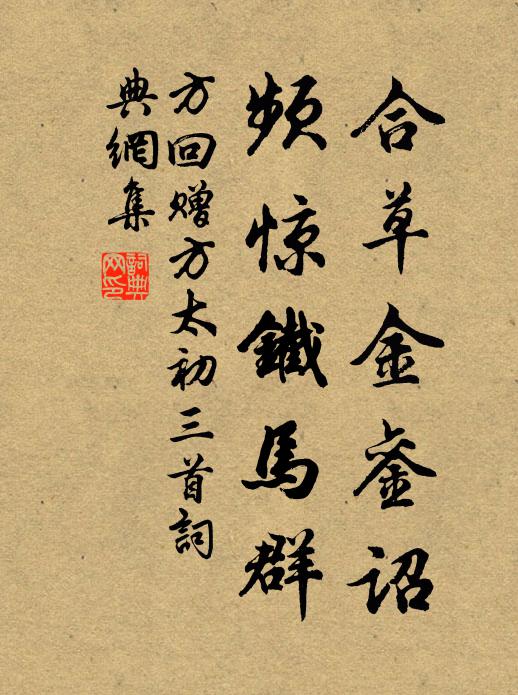 合草金銮诏
频惊鐵馬群
方回赠方太初三首詞
典網集
詞典网印